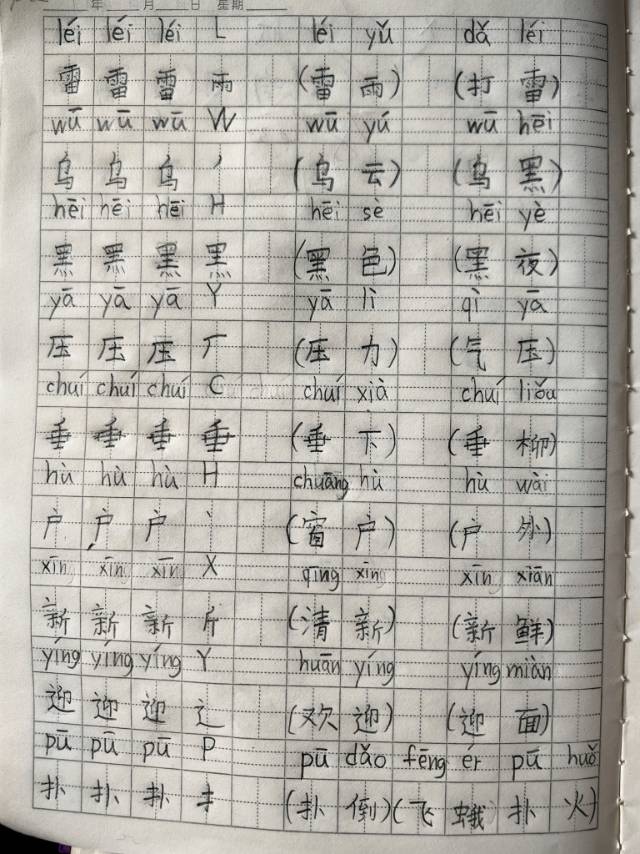 年 月 日 星期
léi léi léi L léi yǔ dǎ léi
雷 雷 雷 雨 (雷 雨) (打 雷)
wū wū wū W wū yú wū hēi
乌 乌 乌 丿 (乌 云) (乌 黑)
hēi hēi hēi H hēi sè hēi yè
黑 黑 黑 黑 (黑 色) (黑 夜)
yā yā yā Y yā lì qì yā
压 压 压 厂 (压 力) (气 压)
chuí chuí chuí C chuí xià chuí liǒu
垂 垂 垂 垂 (垂 下) (垂 柳)
hù hù hù H chuāng hù hù wài
户 户 户 丶 (窗 户) (户 外)
xīn xīn xīn X qīng xīn xīn xiān
新 新 新 斤 (清 新) (新 鲜)
yíng yíng yíng Y huān yíng yíng miàn
迎 迎 迎 辶 (欢 迎) (迎 面)
pū pū pū P pū dǎo fēng ér pū huǒ
扑 扑 扑 扌 (扑 倒) (飞 蛾 扑 火)